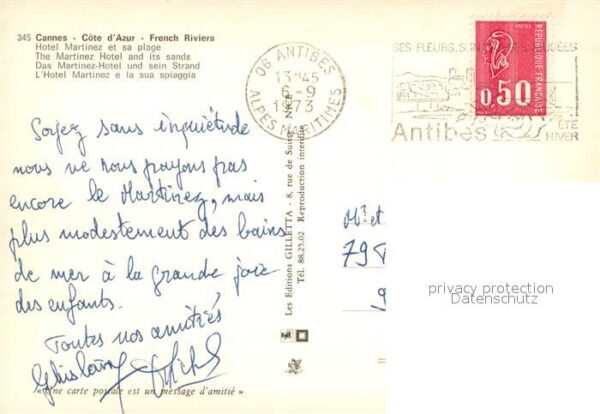 345 Cannes - Côte d'Azur - French Riviera
Hotel Martinez et sa plage
The Martinez Hotel and its sands
Das Martinez-Hotel und sein Strand
L'Hotel Martinez e la sua spiaggia
06 ANTIBES
13H45
6-9
1973
ALPES MARITIMES
SES FLEURS. SON
Antibes
ÉTÉ
HIVER
POSTES
REPUBLIQUE FRANÇAISE
0,50
Soyez sans inquiétude
nous ne nous payons pas
encore le Martinez, mais
plus modestement des bains
de mer à la grande joie
des enfants.
Toutes nos amitiés
Ghislaine
Michel
« Une carte postale est un message d'amitié »
Les Editions GILLETTA - 8, rue de Suisse, NICE
Tél. 88.25.02 Reproduction interdite
Mr et
79
9
privacy protection
Datenschutz